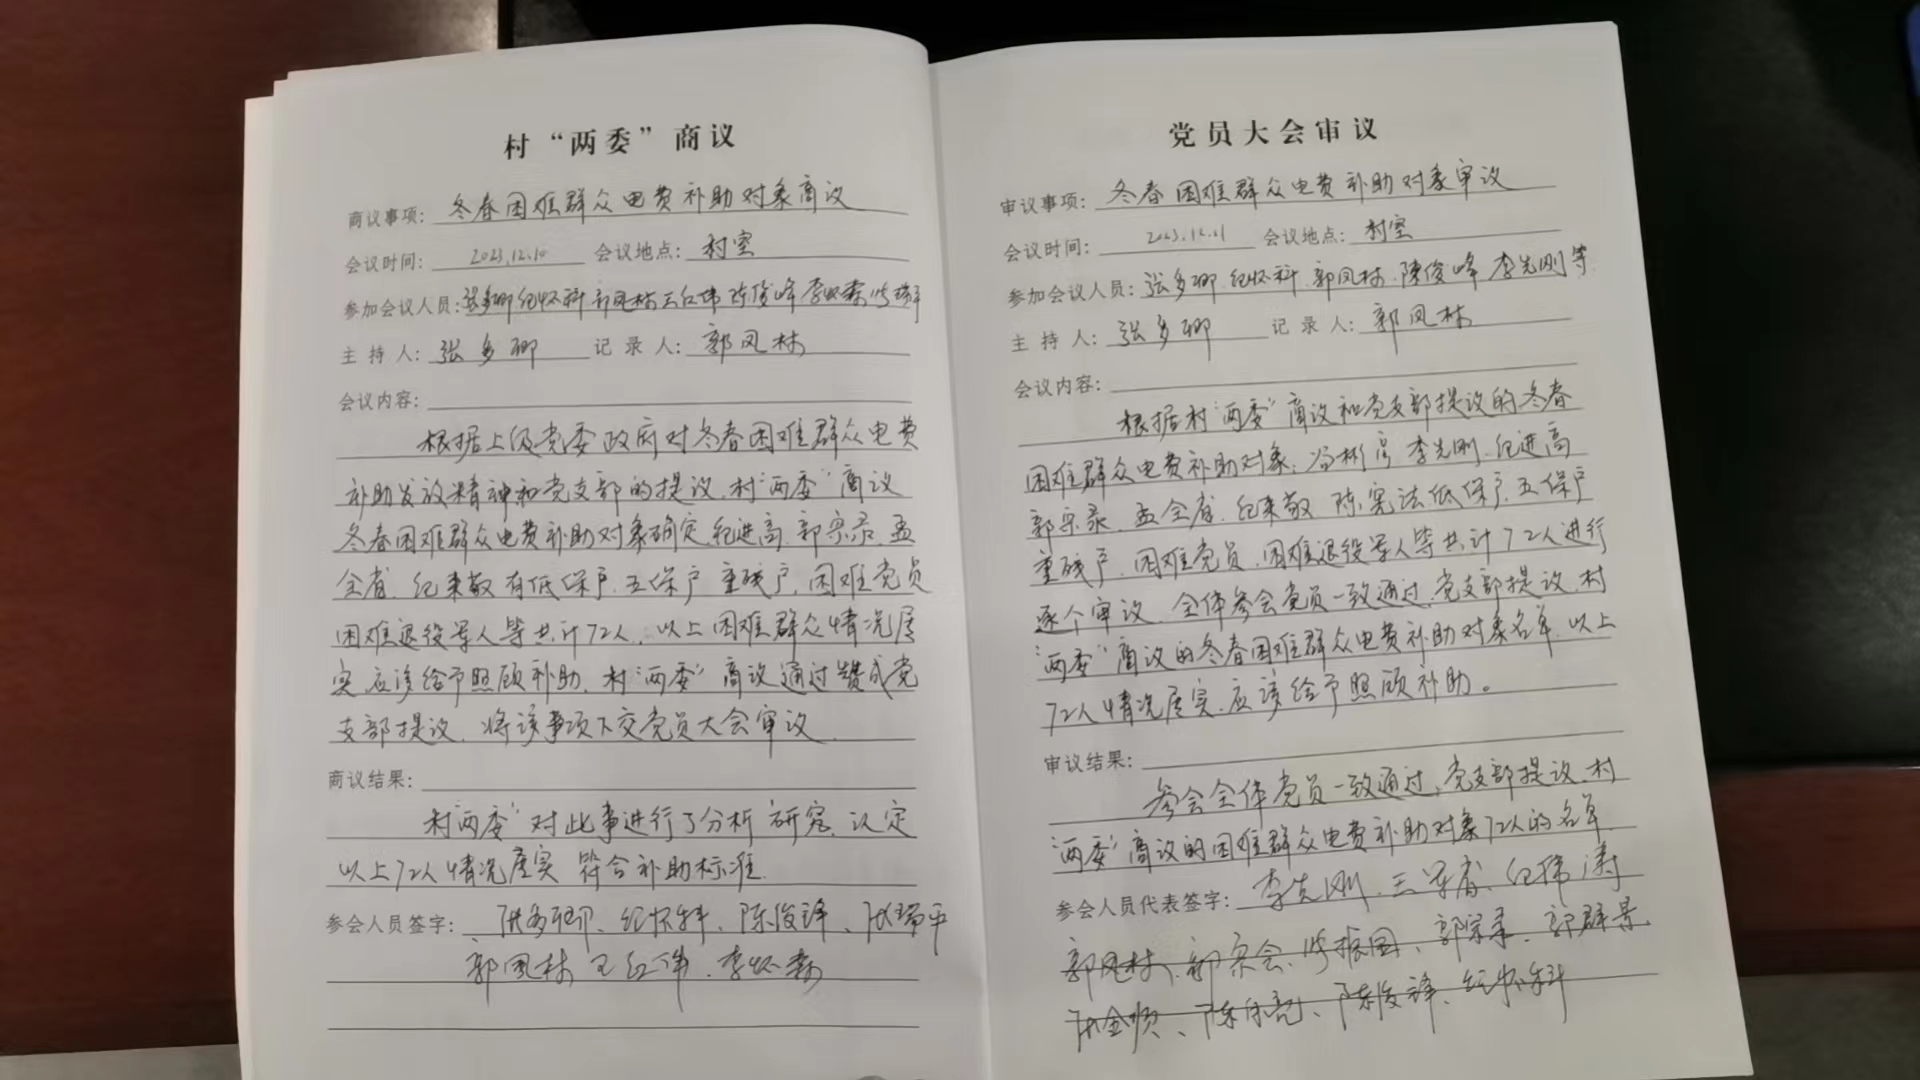 村“两委”商议
商议事项: 冬春困难群众电费补助对象商议
会议时间: 2023.12.10 会议地点: 村室
参加会议人员: 张多卿 纪怀科 郭凤林 王红伟 陈俊峰 李怀森 张瑞平
主持人: 张多卿 记录人: 郭凤林
会议内容:
根据上级党委政府对冬春困难群众电费
补助发放精神和党支部的提议,村“两委”商议
冬春困难群众电费补助对象确定,纪进高、郭宗录、孟
全省、纪来敬有低保户、五保户、重残户、困难党员
困难退役军人等共计72人,以上困难群众情况属
实,应该给予照顾补助,村“两委”商议通过赞成党
支部提议,将该事项下交党员大会审议
商议结果:
村“两委”对此事进行了分析研究,认定
以上72人情况属实 符合补助标准.
参会人员签字: 张多卿、纪怀科、陈俊锋、张瑞平
郭凤林 王红伟、李怀森
党员大会审议
审议事项: 冬春困难群众电费补助对象审议
会议时间: 2023.12.11 会议地点: 村室
参加会议人员: 张多卿、纪怀科、郭凤林、陈俊峰 李先刚等
主持人: 张多卿 记录人: 郭凤林
会议内容:
根据村“两委”商议和党支部提议的冬春
困难群众电费补助对象:冯彬 李先刚、纪进高
郭宗录、孟全省、纪来敬、陈宪法低保户、五保户
重残户、困难党员、困难退役军人等共计72人进行
逐个审议,全体参会党员一致通过,党支部提议,村
“两委”商议的冬春困难群众电费补助对象名单,以上
72人情况属实,应该给予照顾补助。
审议结果:
参会全体党员一致通过,党支部提议、村
“两委”商议的困难群众电费补助对象72人的名单.
参会人员代表签字: 李先刚、王军省、纪伟涛
郭凤林、郭宗会、张振国、郭宗录、郭群景
张金顺、陈保亮、陈俊锋、纪怀科